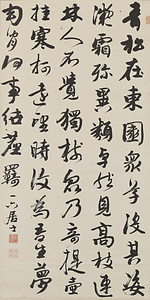 青松在東園衆草沒其姿
凝霜殄異類卓然見高枝連
林人不覺獨樹衆乃奇提壺
挂寒柯遠望時復為吾生夢
幻間何事紲塵羈 居士